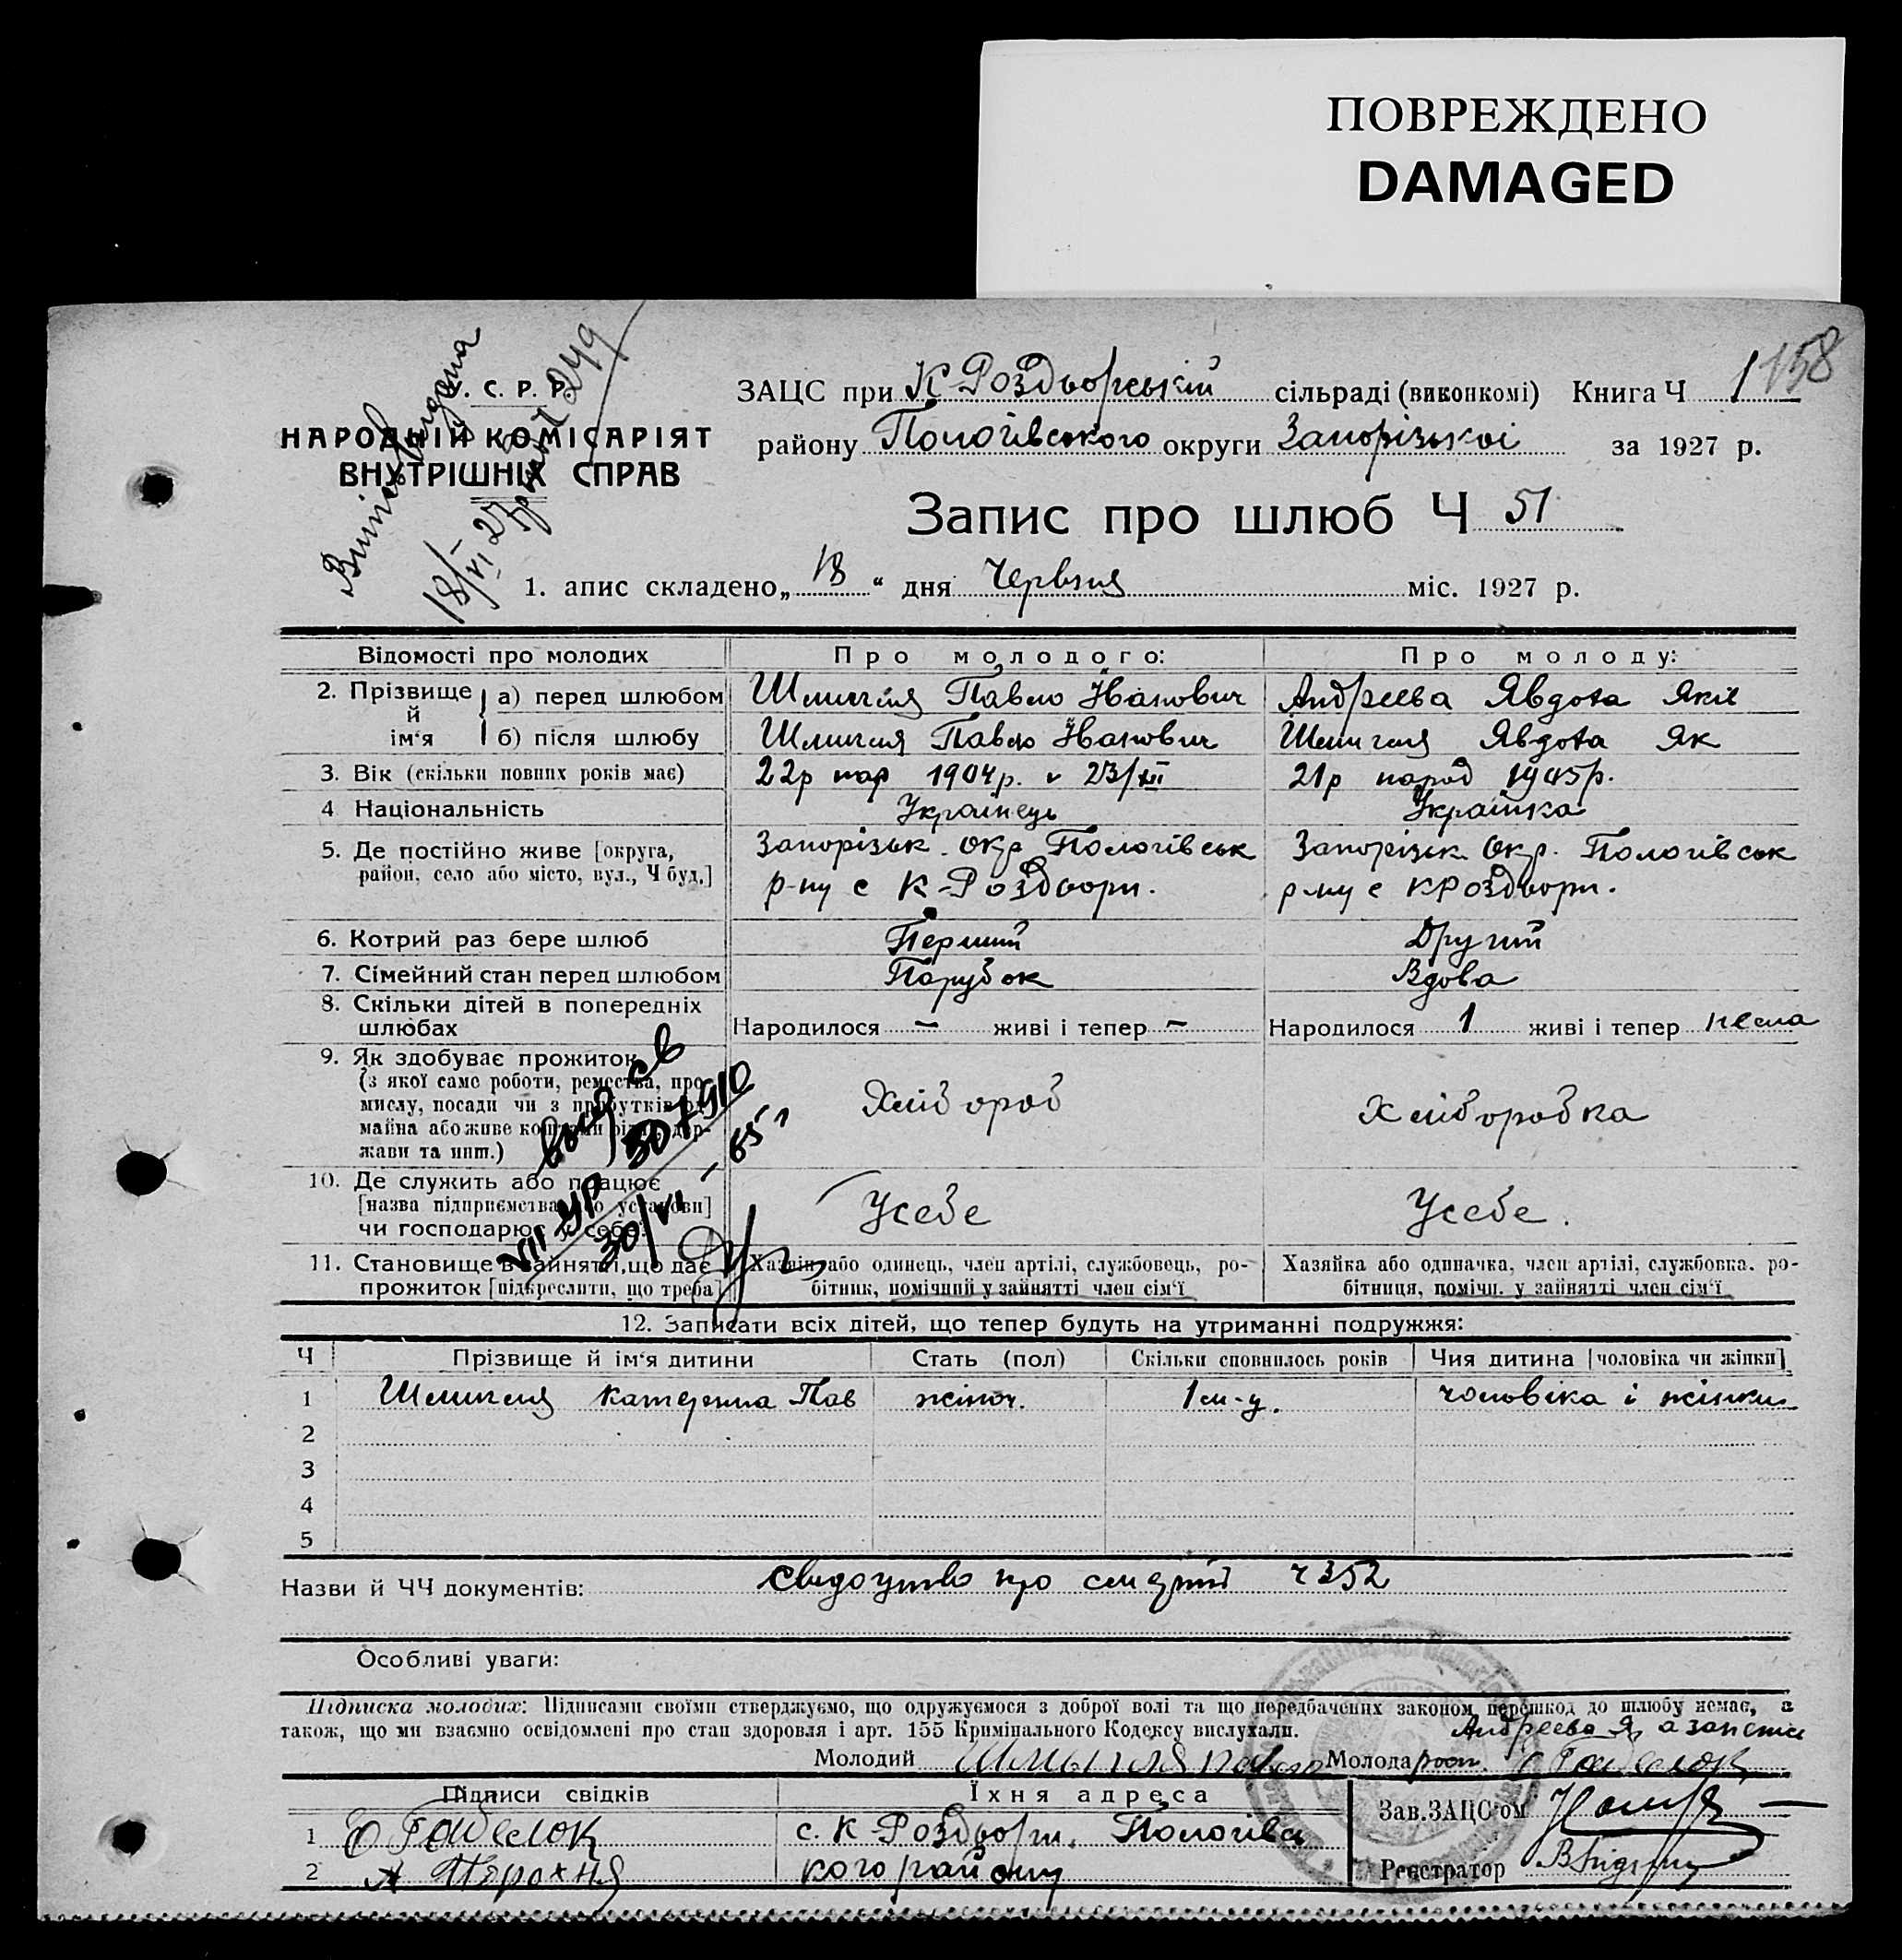 ПОВРЕЖДЕНО
DAMAGED
158
У. С. Р. Р.
НАРОДНІЙ КОМІСАРІЯТ
ВНУТРІШНІХ СПРАВ
18/VI 27
249
ЗАЦС при К-Роздворській сільраді (виконкомі) Книга Ч 1
району Пологівського округи Запорізькоі за 1927 р.
Запис про шлюб Ч 51
1. апис складено „ 18 “ дня Червня міс. 1927 р.
Відомості про молодих Про молодого: Про молоду:
2. Прізвище й ім‘я а) перед шлюбом Шмигля Павло Іванович Андреева Явдота Яків
б) після шлюбу Шмигля Павло Іванович Шмигля Явдота Як
3. Вік (скільки повних років має) 22р нар 1904р. 21р народ 1905р.
4 Національність Українець Українка
5. Де постійно живе [округа, Запорізьк. окр Пологівськ Запорізьк Окр. Пологівськ
район, село або місто, вул., Ч буд.] р-ну с К-Роздвори. р-ну с КРоздвори.
6. Котрий раз бере шлюб Перший Другий
7. Сімейний стан перед шлюбом Парубок Вдова
8. Скільки дітей в попередніх
шлюбах Народилося — живі і тепер — Народилося 1 живі і тепер нема
9. Як здобуває прожиток
(з якої саме роботи, ремества, про-
мислу, посади чи з прибутків од Хлібороб Хліборобка
майна або живе коштами рідні, дер-
жави та инш.)
10. Де служить або працює
[назва підприємства або установи] Усебе Усебе.
чи господарює у себе?
11. Становище в зайнятті, що дає Хазяїн або одинець, член артілі, службовець, ро- Хазяйка або одиначка, член артілі, службовка. ро-
прожиток [підкреслити, що треба] бітник, помічний у зайнятті член сім‘ї бітниця, помічн. у зайнятті член сім‘ї
12. Записати всіх дітей, що тепер будуть на утриманні подружжя:
Ч Прізвище й ім‘я дитини Стать (пол) Скільки сповнилось років Чия дитина [чоловіка чи жінки]
1 Шмигля Катерина Пав жіноч. 1 м-ц. чоловіка і жінки
2
3
4
5
Назви й ЧЧ документів: Свидоцтво про смерть ч 352
Особливі уваги:
Підписка молодих: Підписами своїми стверджуємо, що одружуємося з доброї волі та що передбачених законом перешкод до шлюбу немає, а
також, що ми взаємно освідомлені про стан здоровля і арт. 155 Кримінального Кодексу вислухали. Андреева Я,
Молодий Шмыгля Павло Молода
Підписи свідків Їхня адреса Зав. ЗАЦС‘ом
1 с. К-Роздвори. Пологівсь
2 кого району Реєстратор